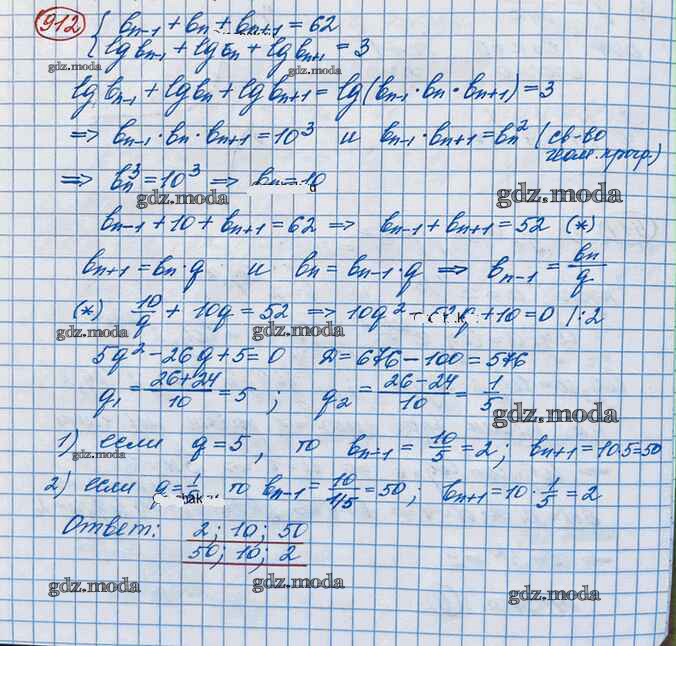 912 { bn-1 + bn + bn+1 = 62
lg bn-1 + lg bn + lg bn+1 = 3
gdz.moda gdz.moda
lg bn-1 + lg bn + lg bn+1 = lg(bn-1 · bn · bn+1) = 3
=> bn-1 · bn · bn+1 = 10³ и bn-1 · bn+1 = bn² (св-во
геом. прогр.)
=> bn³ = 10³ => bn = 10
gdz.moda gdz.moda
bn-1 + 10 + bn+1 = 62 => bn-1 + bn+1 = 52 (*)
bn+1 = bn · q и bn = bn-1 · q => bn-1 = bn/q
(*) 10/q + 10q = 52 => 10q² q + 10 = 0 /:2
gdz.moda gdz.moda
5q² - 26q + 5 = 0 D = 676 - 100 = 576
q1 = (26+24)/10 = 5 ; q2 = (26-24)/10 = 1/5
gdz.moda
1) если q = 5, то bn-1 = 10/5 = 2; bn+1 = 10·5 = 50
gdz.moda
2) если q = 1/ то bn-1 = 10/1/5 = 50; bn+1 = 10 · 1/5 = 2
Ответ: 2; 10; 50
50; 10; 2
gdz.moda gdz.moda gdz.moda